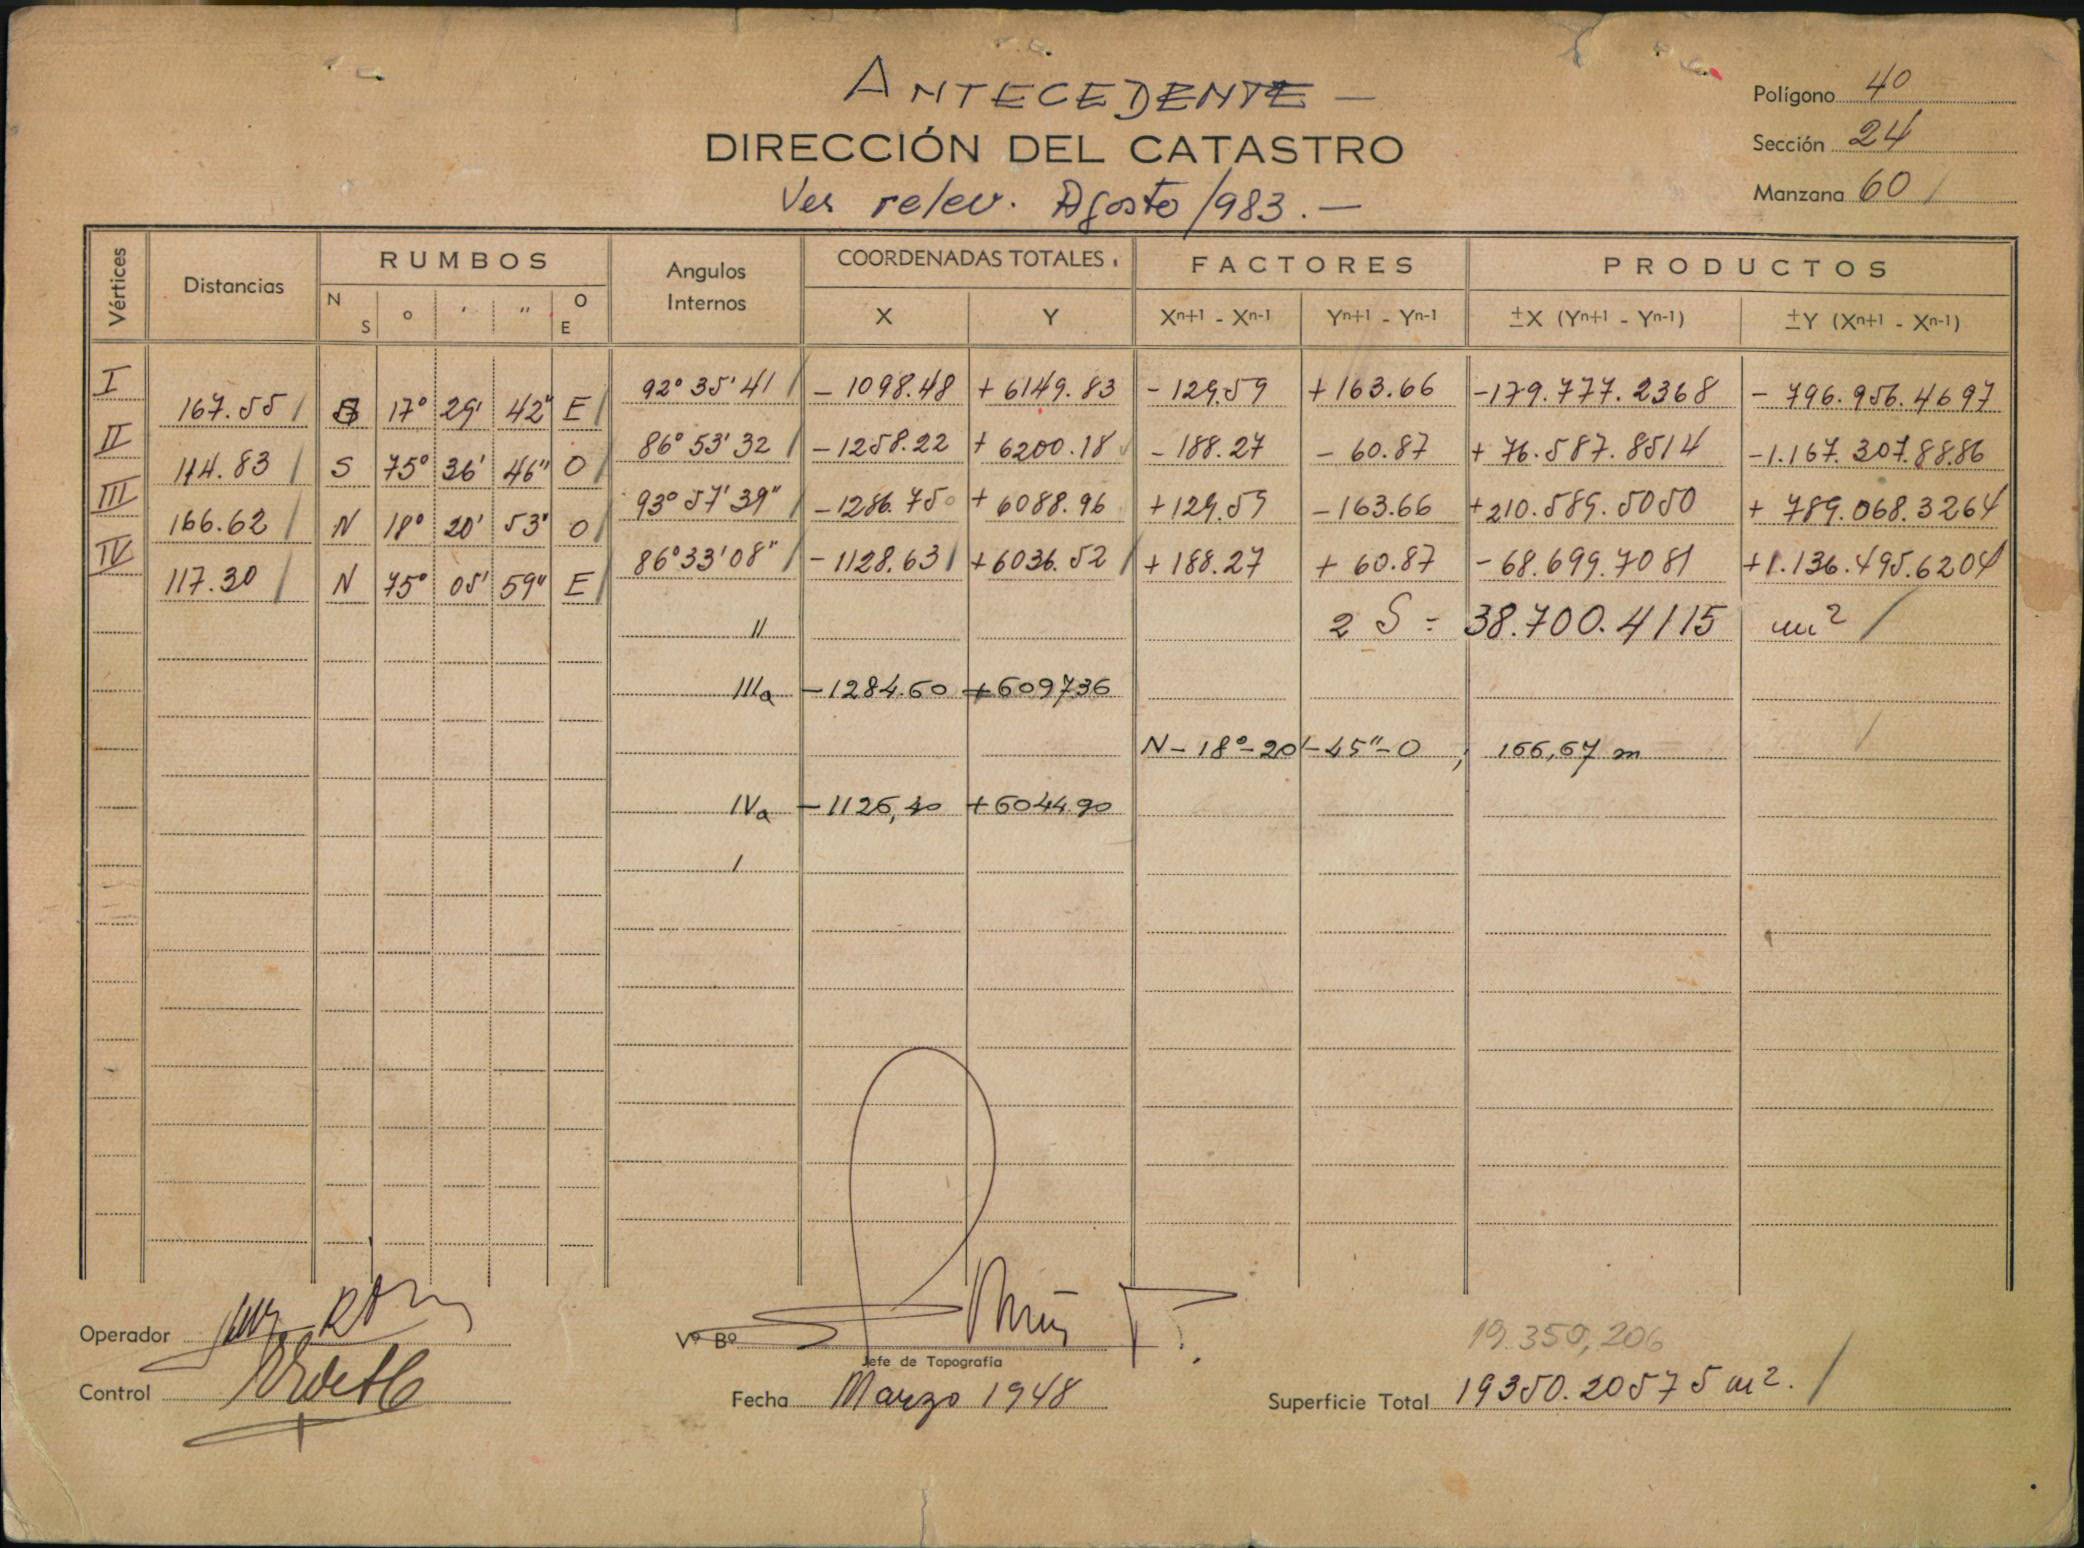 ANTECEDENTE —
DIRECCIÓN DEL CATASTRO
Ver relev. Agosto/983.—
Polígono 40
Sección 24
Manzana 60 /
Vértices Distancias RUMBOS Angulos Internos COORDENADAS TOTALES FACTORES PRODUCTOS
N S ° ' " O E X Y Xn+1 - Xn-1 Yn+1 - Yn-1 ±X (Yn+1 - Yn-1) ±Y (Xn+1 - Xn-1)
I 92° 35' 41 / - 1098.48 + 6149.83 - 129.59 + 163.66 - 179.777.2368 - 796.956.4697
167.55 / S 17° 29' 42" E /
II 86° 53' 32 / - 1258.22 + 6200.18 - 188.27 - 60.87 + 76.587.8514 - 1.167.307.8886
114.83 / S 75° 36' 46" O /
III 93° 57' 39" / - 1286.75 + 6088.96 + 129.59 - 163.66 + 210.589.5050 + 789.068.3264
166.62 / N 18° 20' 53" O /
IV 86° 33' 08" / - 1128.63 / + 6036.52 / + 188.27 + 60.87 - 68.699.7081 + 1.136.495.6204
117.30 / N 75° 05' 59" E /
II 2 S = 38.700.4115 m² /
IIIa - 1284.60 + 6097.36
N - 18° - 20' - 45" - O ; 166,67 m
IVa - 1126,40 + 6044.90
I
Operador
Control
Vº Bº
Jefe de Topografía
Fecha Marzo 1948
19.350,206
Superficie Total 19350.20575 m². /